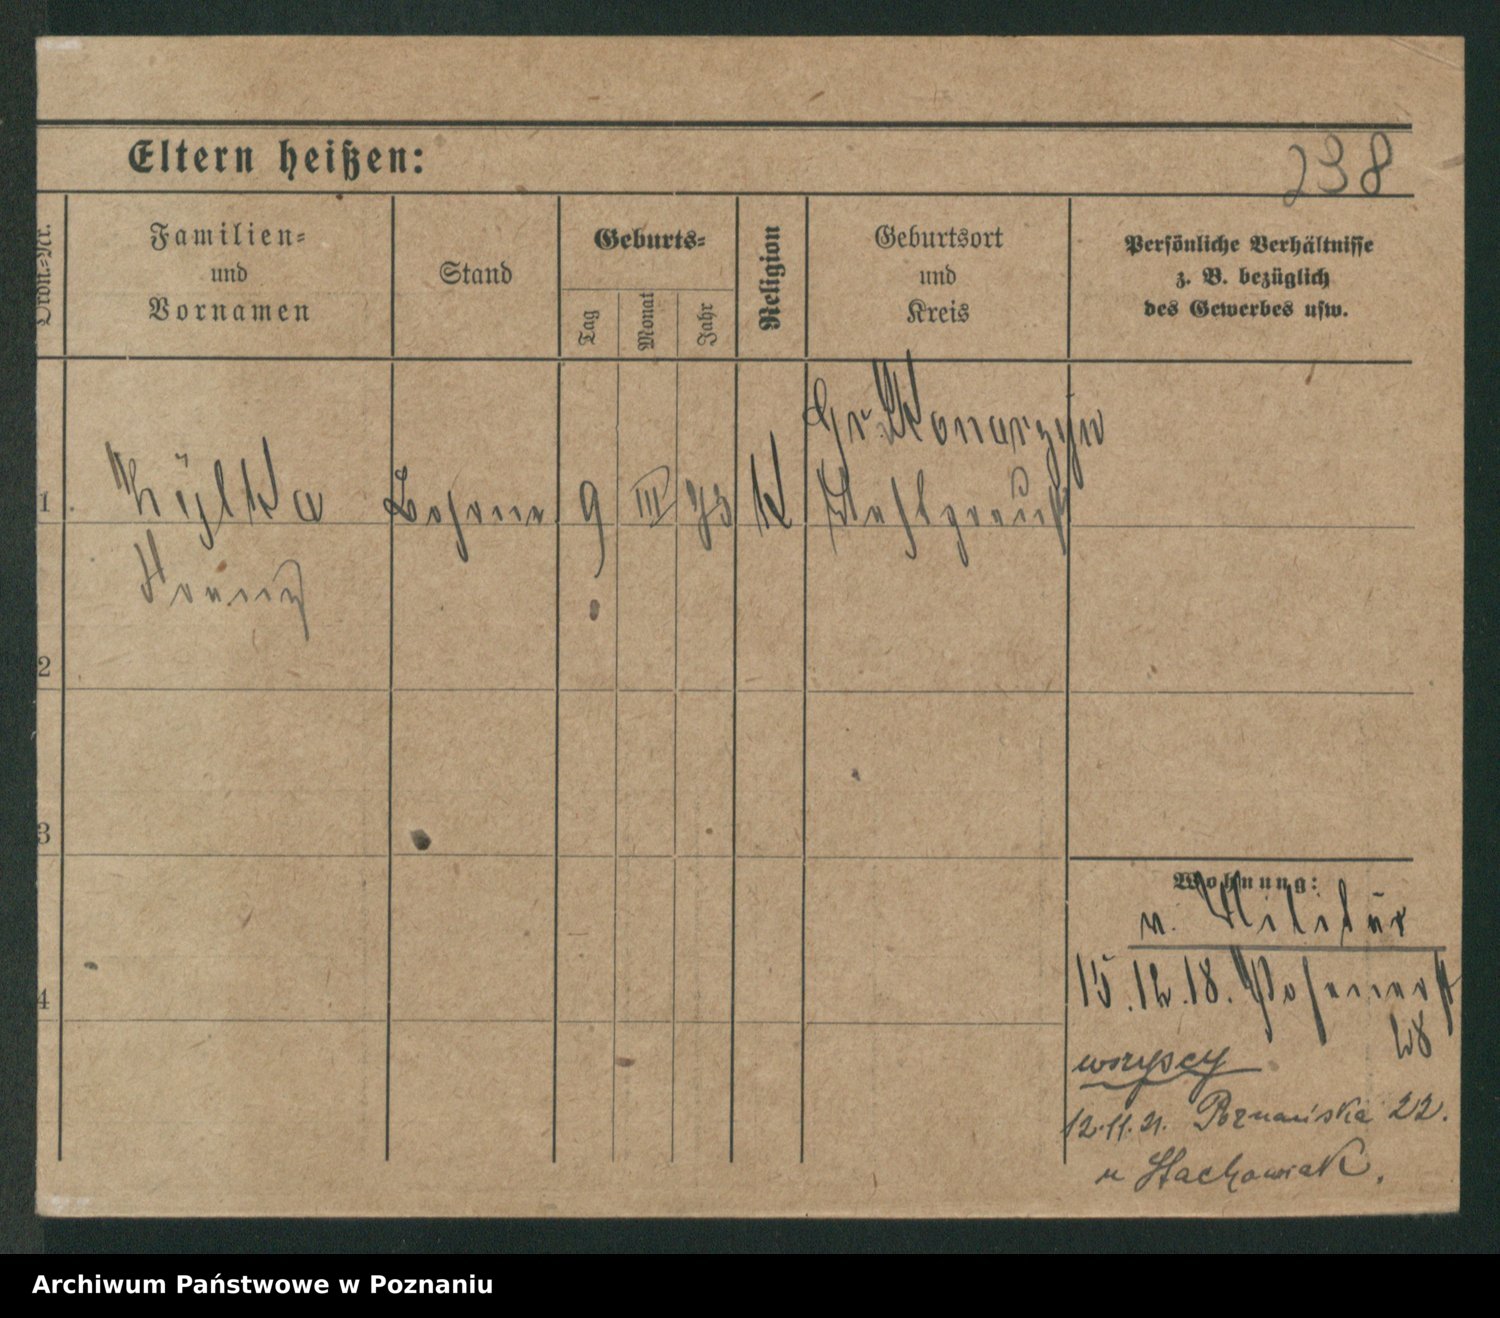 Eltern heißen:
238
Ordn.-Nr.
Familien-
und
Vornamen
Stand
Geburts-
Tag
Monat
Jahr
Religion
Geburtsort
und
Kreis
Persönliche Verhältnisse
z. B. bezüglich
des Gewerbes usw.
Gr. Konarzyn
1
9 III 73 K
Franz
2
3
4
Wohnung:
v. Militär
15.12.18. Posenerst
28
wszyscy
12.11.21. Poznańska 22.
u Stachowiak.
Archiwum Państwowe w Poznaniu